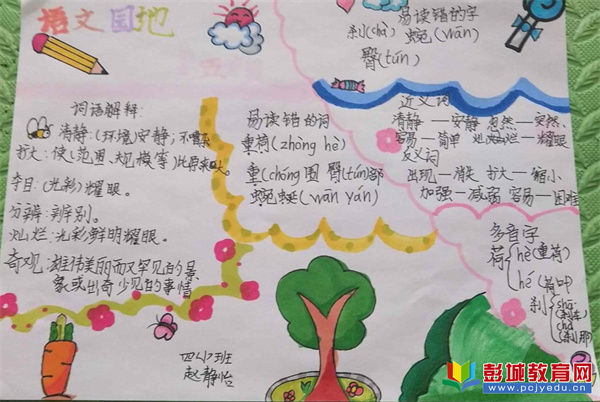 语文园地
词语解释:
清静:(环境)安静;不嘈杂
扩大:使(范围、规模等)比原来大。
夺目:(光彩)耀眼。
分辨:辨别。
灿烂:光彩鲜明耀眼。
奇观:雄伟美丽而又罕见的景
象或出奇少见的事情
四(2)班
赵静怡
易读错的词
重荷(zhòng hè)
重(chóng)围 臀(tún)部
蜿蜒(wān yán)
易读错的字
刹(chà) 蜿(wān)
臀(tún)
近义词
清静—安静 忽然—突然
容易—简单 灿烂—耀眼
反义词
出现—消失 扩大—缩小
加强—减弱 容易—困难
多音字
荷 hè(重荷)
hé(荷叶)
刹 shā
(刹车)
chà
(刹那)
彭城教育网
www.pcjyedu.cn